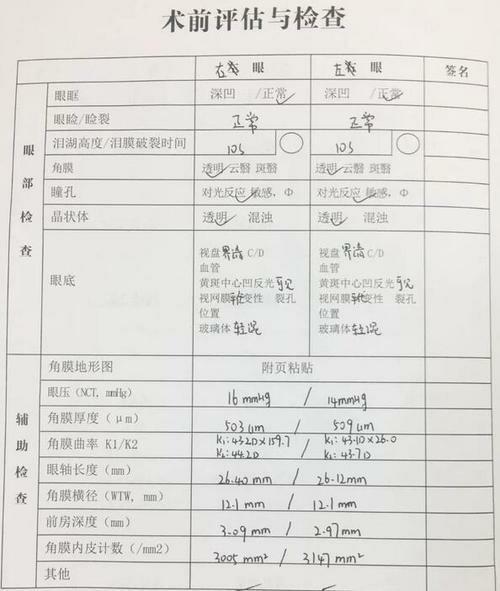 术前评估与检查
右 眼 左 眼 签名
眼部检查
眼眶 深凹 /正常 深凹 /正常
眼睑/睑裂 正常 正常
泪湖高度/泪膜破裂时间 10s 10s
角膜 透明 云翳 斑翳 透明 云翳 斑翳
瞳孔 对光反应 敏感，Φ 对光反应 敏感，Φ
晶状体 透明 混浊 透明 混浊
眼底
视盘界清 C/D 视盘界清 C/D
血管 血管
黄斑中心凹反光可见 黄斑中心凹反光可见
视网膜 变性 裂孔 视网膜 变性 裂孔
位置 位置
玻璃体轻混 玻璃体轻混
辅助检查
角膜地形图 附页粘贴
眼压(NCT, mmHg) 16 mmHg / 14mmHg
角膜厚度（μm） 503 um / 509 um
角膜曲率 K1/K2 K1:43.2D×159.7 / K1:43.1D×26.0
K2:44.2D K2:43.7D
眼轴长度（mm） 26.40 mm / 26.12mm
角膜横径（WTW, mm） 12.1 mm / 12.1 mm
前房深度（mm） 3.09 mm / 2.97mm
角膜内皮计数（/mm2） 3005 mm² / 3147 mm²
其他